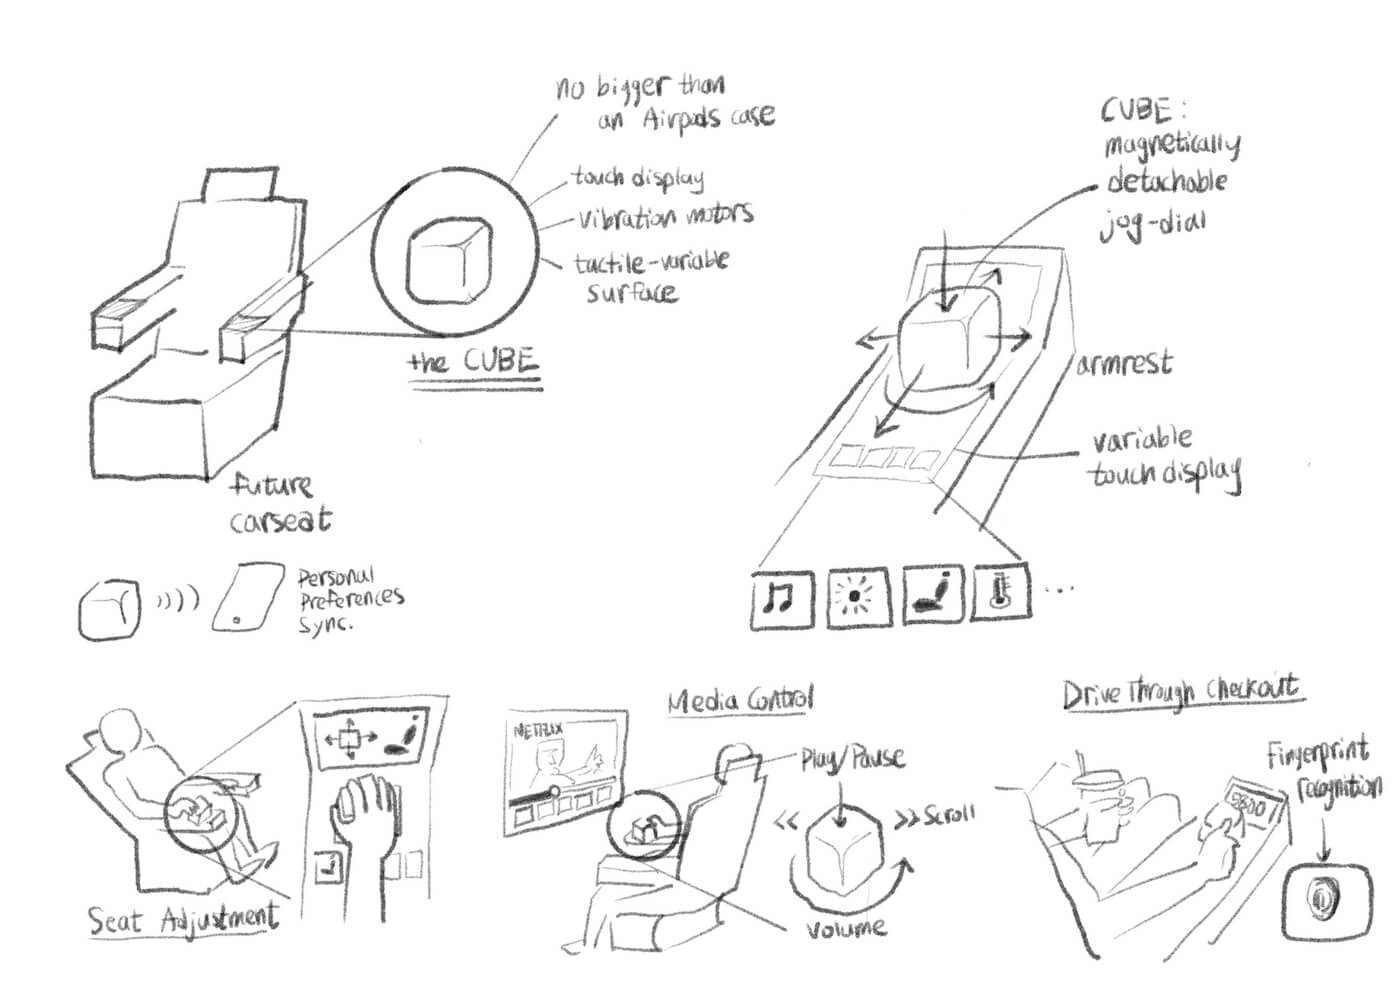 no bigger than
an Airpods case
touch display
vibration motors
tactile-variable
surface
the CUBE
future
carseat
CUBE:
magnetically
detachable
jog-dial
armrest
variable
touch display
...
Personal
Preferences
Sync.
Seat Adjustment
Media Control
NETFLIX
Play/Pause
<< >> Scroll
Volume
Drive Through Checkout
Fingerprint
recognition